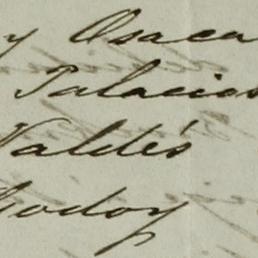 y Osaca
Palacios
Valdés
Godoy